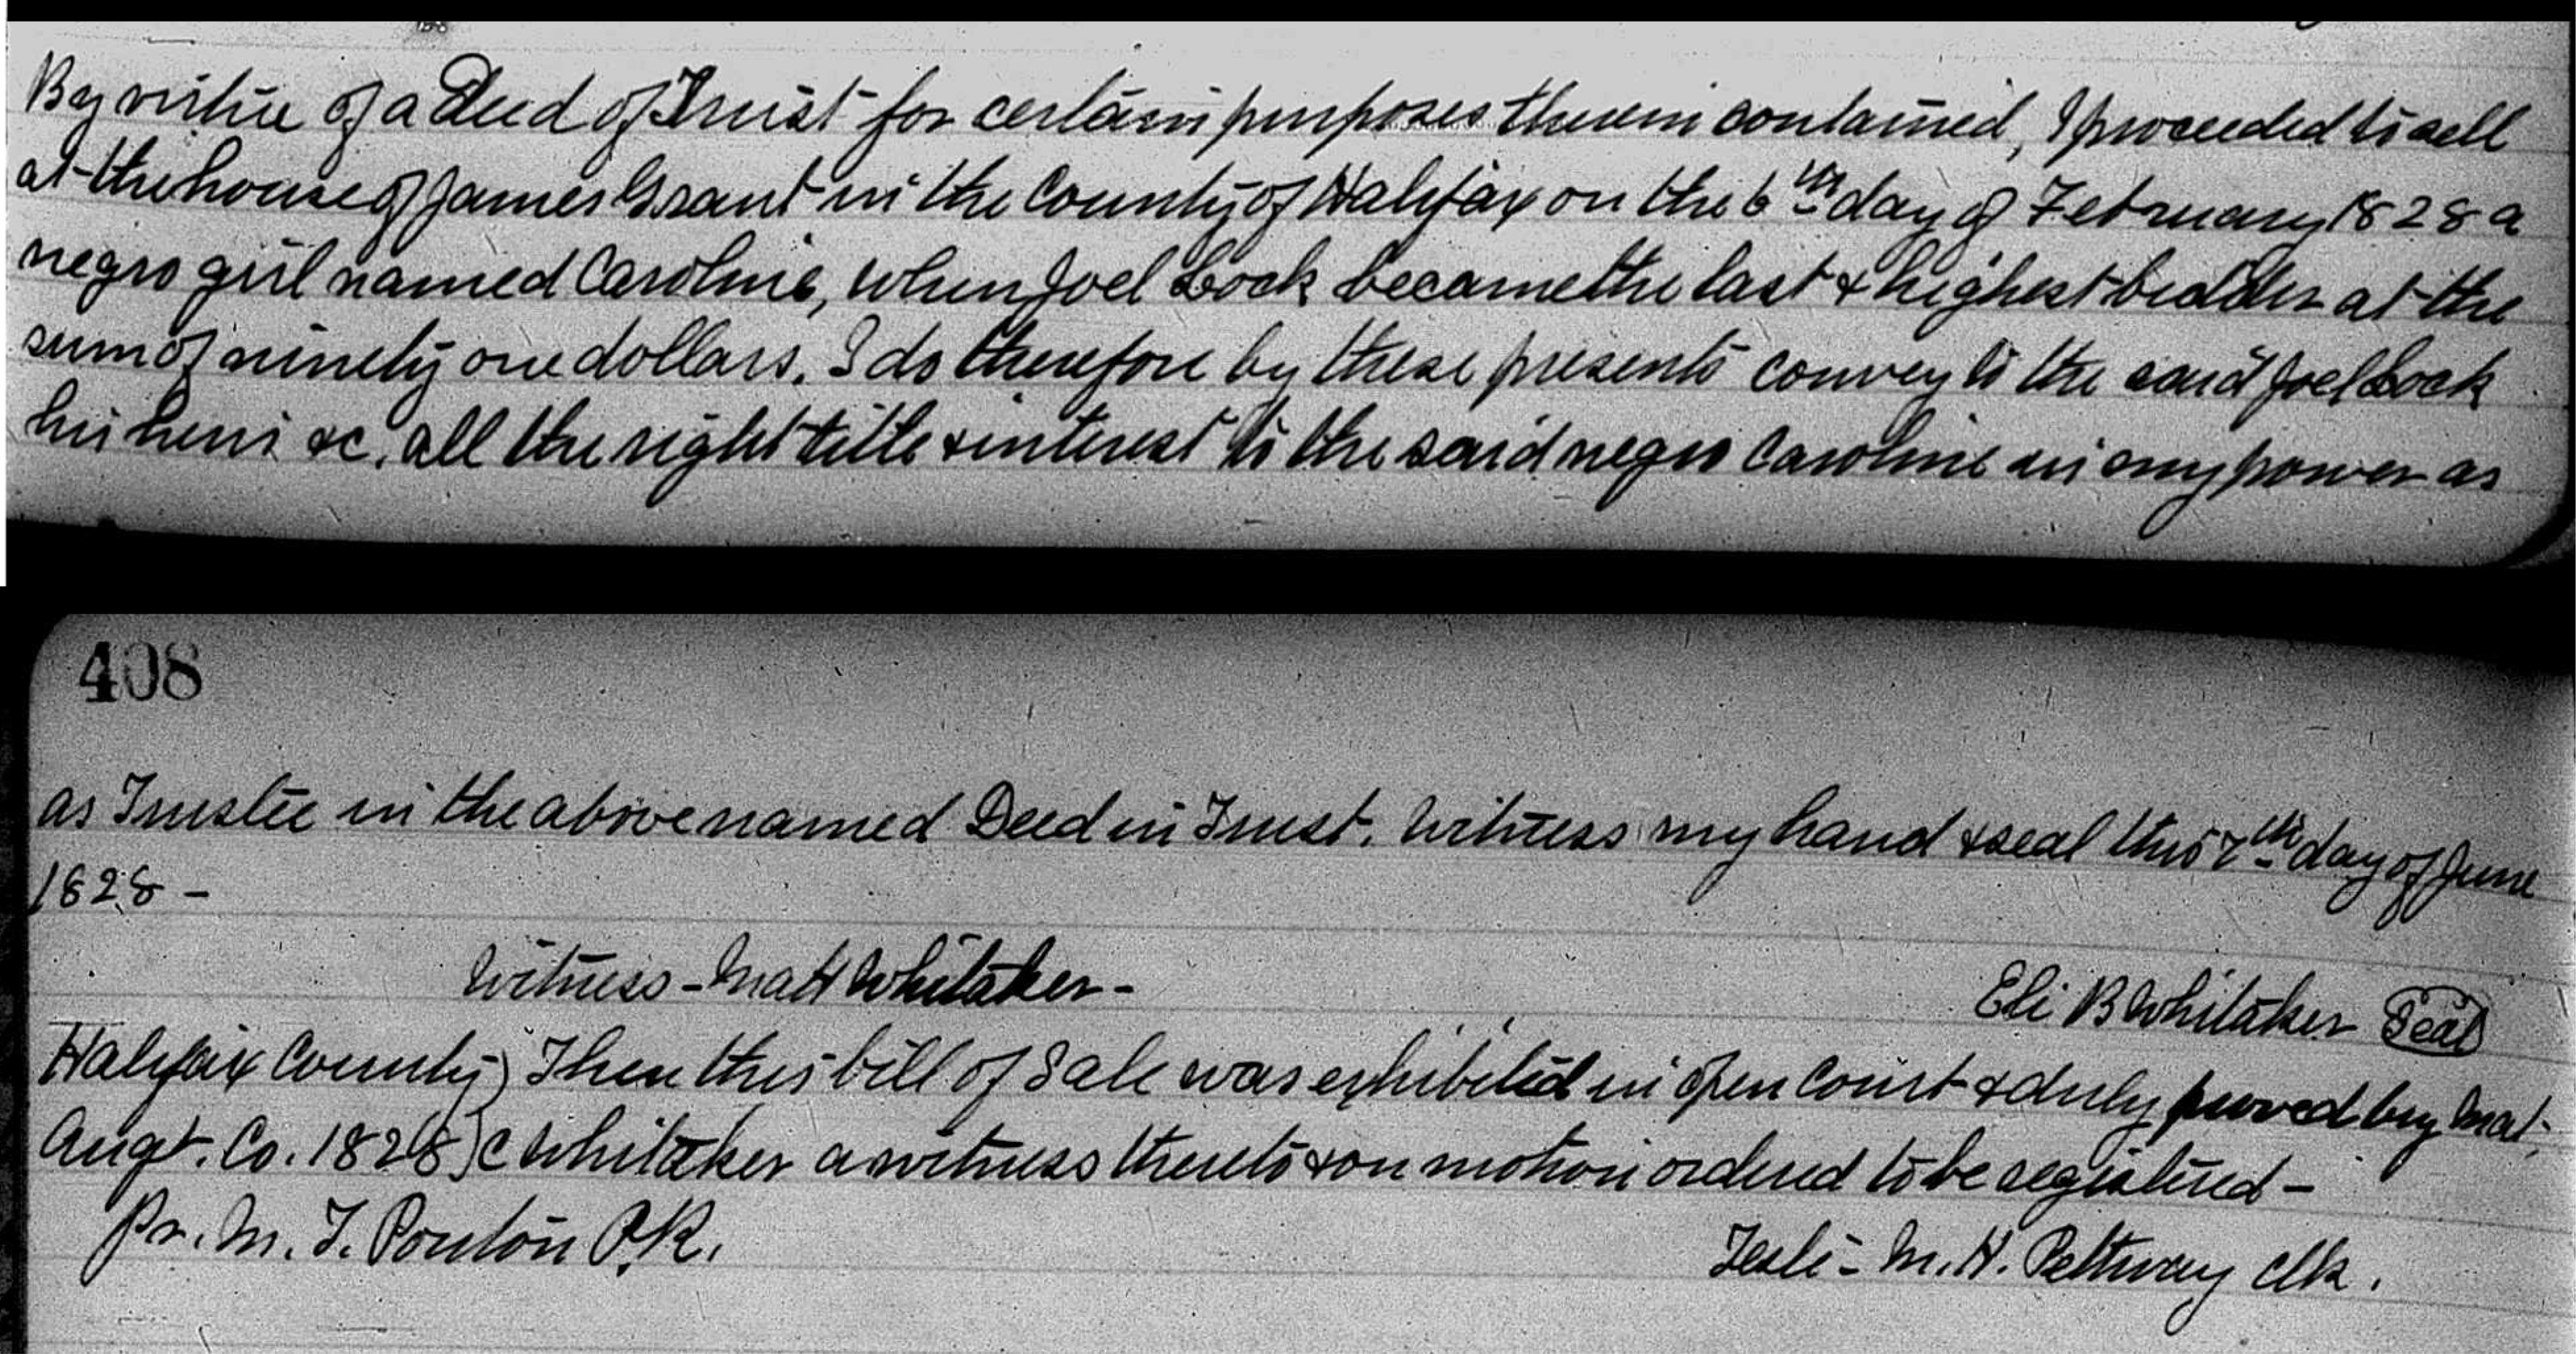 By virtue of a Deed of Trust for certain purposes therein contained, I proceeded to sell
at the house of James Grant in the County of Halifax on the 6th day of February 1828 a
negro girl named Caroline, when Joel Lock became the last & highest bidder at the
sum of ninety one dollars. I do therefore by these presents convey to the said Joel Lock
his heirs &c. all the right title & interest to the said negro Caroline in my power as
408
as Trustee in the above named Deed in Trust. Witness my hand & seal this 7th day of June
1828 -
Witness - Matt Whitaker -
Eli B Whitaker Seal
Halifax County) Then this bill of Sale was exhibited in open Court & duly proved by Mat.
Augt. Co. 1828) C Whitaker a witness thereto & on motion ordered to be registered -
Pr. M. T. Ponton P.R.
Teste - M. H. Pettway Clk.